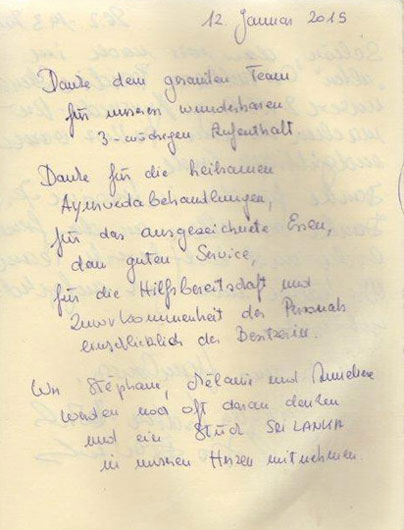 12. Januar 2015
Danke dem gesamten Team
für unseren wunderbaren
3-wöchigen Aufenthalt.
Danke für die heilsamen
Ayurvedabehandlungen,
für das ausgezeichnete Essen,
dem guten Service,
für die Hilfsbereitschaft und
Zuvorkommenheit des Personals
einschließlich der Besitzerin.
Wir Stephan, Mélanie und
werden noch oft daran denken
und ein Stück SRI LANKA
in unseren Herzen mitnehmen.